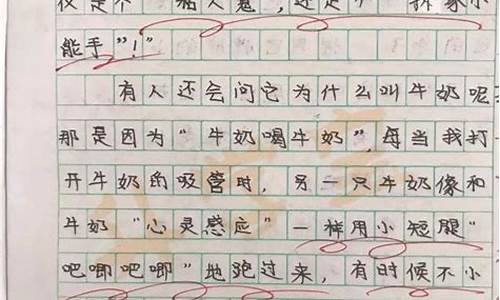 仅是个"粘人鬼，还是个"拆家小
能手"！"
有人还会问它为什么叫牛奶呢
那是因为"牛奶喝牛奶"，每当我打
开牛奶的吸管时，另一只牛奶像和
牛奶"心灵感应"一样用小短腿"
吧唧吧唧"地跑过来，有时候不小